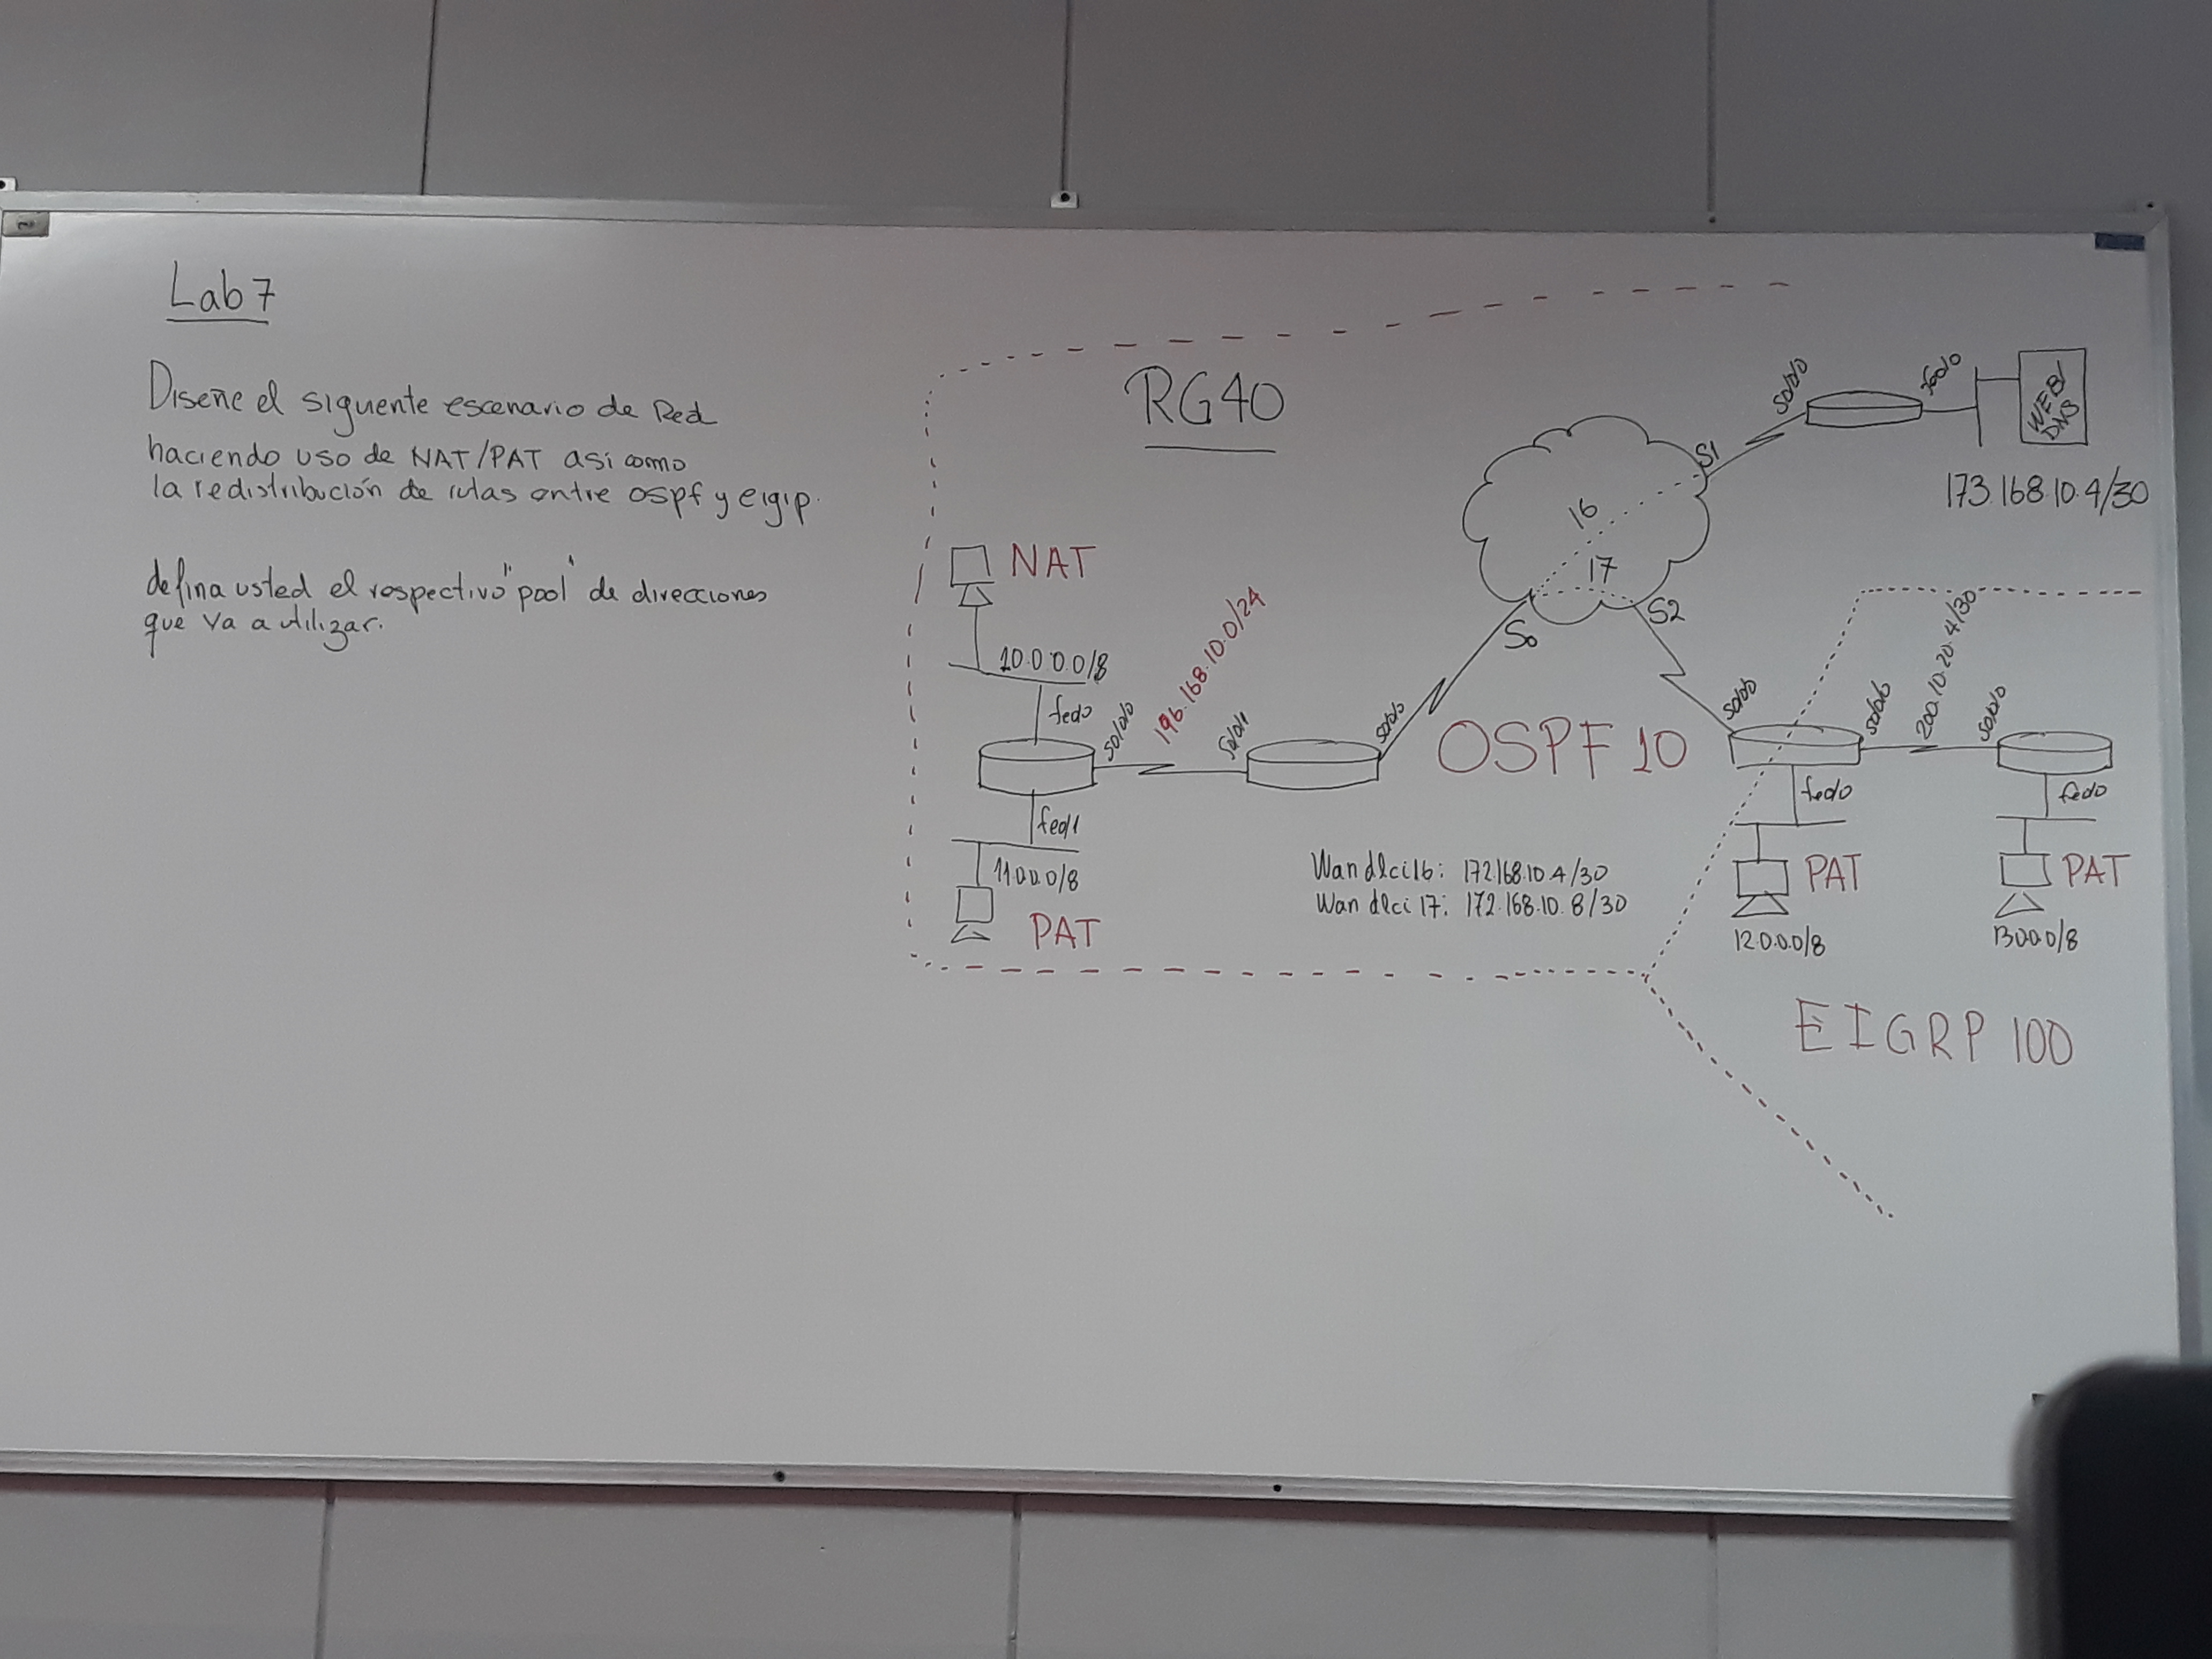 Lab 7
Diseñe el siguente escenario de Red
haciendo uso de NAT/PAT asi como
la redistribución de rutas entre ospf y eigrp.
defina usted el respectivo "pool" de direcciones
que va a utilizar.
RG40
NAT
10.0.0.0/8
fe0/0
s0/0/0
196.168.10.0/24
s0/0/1
s0/0/0
fe0/1
11.0.0.0/8
PAT
16
17
S0
S1
S2
s0/0/0
fe0/0
WEB/
DNS
173.168.10.4/30
OSPF 10
Wan dlci 16: 172.168.10.4/30
Wan dlci 17: 172.168.10.8/30
s0/0/0
200.10.20.4/30
s0/0/0
fe0/0
PAT
12.0.0.0/8
fe0/0
PAT
13.0.0.0/8
EIGRP 100